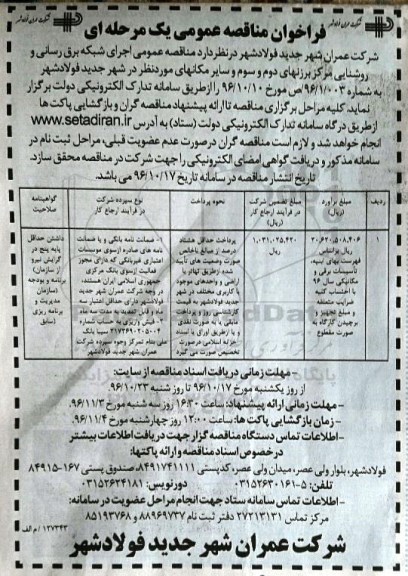 فراخوان مناقصه عمومی یک مرحله ای
شرکت عمران شهر جدید فولادشهر در نظر دارد مناقصه عمومی اجرای شبکه برق رسانی و
روشنایی مرکز برزنهای دوم و سوم و سایر مکانهای مورد نظر در شهر جدید فولادشهر
به شماره ۹۶/۱/۰۰۳ ص مورخ ۹۶/۱۰/۱۰ را از طریق سامانه تدارک الکترونیکی دولت برگزار
نماید. کلیه مراحل برگزاری مناقصه تا ارائه پیشنهاد مناقصه گران و بازگشایی پاکت ها
از طریق درگاه سامانه تدارک الکترونیکی دولت (ستاد) به آدرس www.setadiran.ir
انجام خواهد شد و لازم است مناقصه گران در صورت عدم عضویت قبلی، مراحل ثبت نام در
سامانه مذکور و دریافت گواهی امضای الکترونیکی را جهت شرکت در مناقصه محقق سازد.
تاریخ انتشار مناقصه در سامانه تاریخ ۹۶/۱۰/۱۷ می باشد.
ردیف
مبلغ برآورد
(ریال)
مبلغ تضمین شرکت
در فرآیند ارجاع کار
(ریال)
نحوه پرداخت
نوع سپرده شرکت
در فرآیند ارجاع کار
گواهینامه
صلاحیت
۲۰.۶۲۰.۵۰۸.۴۰۶
ریال براساس
فهرست بهای ابنیه،
تاسیسات برقی و
مکانیکی سال ۹۶
با احتساب کلیه
ضرایب متعلقه
و مبلغ تجهیز و
برچیدن کارگاه به
صورت مقطوع
۱.۰۳۱.۰۲۵.۴۲۰
ریال
پرداخت حداقل هشتاد
درصد از مبالغ ناخالص
صورت وضعیت های تایید
شده از طریق تهاتر با
اراضی و واحدهای موجود
با کاربری مختلف در شهر
جدید فولادشهر به قیمت
کارشناسی روز و پرداخت
مابقی یا به صورت نقدی
و یا از طریق اوراق یا اسناد
خزانه اسلامی در صورت
تخصیص صورت می گیرد
- ضمانت نامه بانکی و یا ضمانت
نامه های صادره از سوی موسسات
اعتباری غیربانکی که دارای مجوز
فعالیت از سوی بانک مرکزی
جمهوری اسلامی ایران هستند،
در وجه شرکت عمران شهر جدید
فولادشهر دارای حداقل اعتبار سه
ماه و قابل تمدید به مدت سه ماه
- فیش واریزی به حساب شماره
۲۱۷۳۶۹۰۲۰۵۰۰۴ سیبا بانک
ملی بنام تمرکز وجوه سپرده شرکت
عمران شهر جدید فولادشهر
داشتن حداقل
پایه پنج در
گرایش نیرو
از سازمان
برنامه و بودجه
(سازمان
مدیریت و
برنامه ریزی
سابق)
- مهلت زمانی دریافت اسناد مناقصه از سایت:
از روز یکشنبه مورخ ۹۶/۱۰/۱۷ تا روز شنبه ۹۶/۱۰/۲۳
- مهلت زمانی ارائه پیشنهاد: ساعت ۱۶:۳۰ روز سه شنبه مورخ ۹۶/۱۱/۳
- زمان بازگشایی پاکت ها: ساعت ۱۳:۰۰ روز چهارشنبه مورخ ۹۶/۱۱/۴
- اطلاعات تماس دستگاه مناقصه گزار جهت دریافت اطلاعات بیشتر
در خصوص اسناد مناقصه و ارائه پاکتها:
فولادشهر، بلوار ولی عصر، میدان ولی عصر، کدپستی ۸۴۹۱۷۴۱۱۱۱، صندوق پستی ۱۶۷-۸۴۹۱۵
تلفن: ۵-۰۳۱۵۲۶۳۰۱۶۱ دورنویس: ۰۳۱۵۲۶۲۴۱۸۱
- اطلاعات تماس سامانه ستاد جهت انجام مراحل عضویت در سامانه:
مرکز تماس ۲۷۳۱۳۱۳۱ دفتر ثبت نام ۸۸۹۶۹۷۳۷ و ۸۵۱۹۳۷۶۸
۱۲۷۳۴۳ / م الف
شرکت عمران شهر جدید فولادشهر